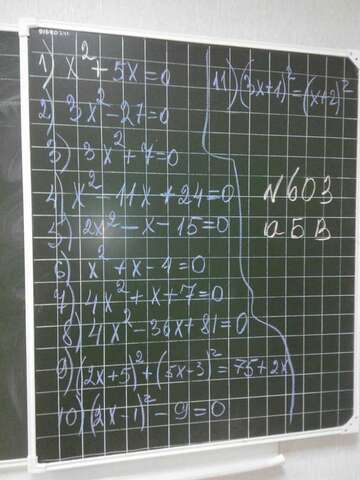 1) x² + 5x = 0
2) 3x² - 27 = 0
3) 3x² + 7 = 0
4) x² - 11x + 24 = 0
5) 2x² - x - 15 = 0
6) x² + x - 1 = 0
7) 4x² + x + 7 = 0
8) 4x² - 36x + 81 = 0
9) (2x + 5)² + (5x - 3)² = 75 + 2x
10) (2x - 1)² - 9 = 0
11) (3x + 1)² = (x + 2)²
№603
а б в